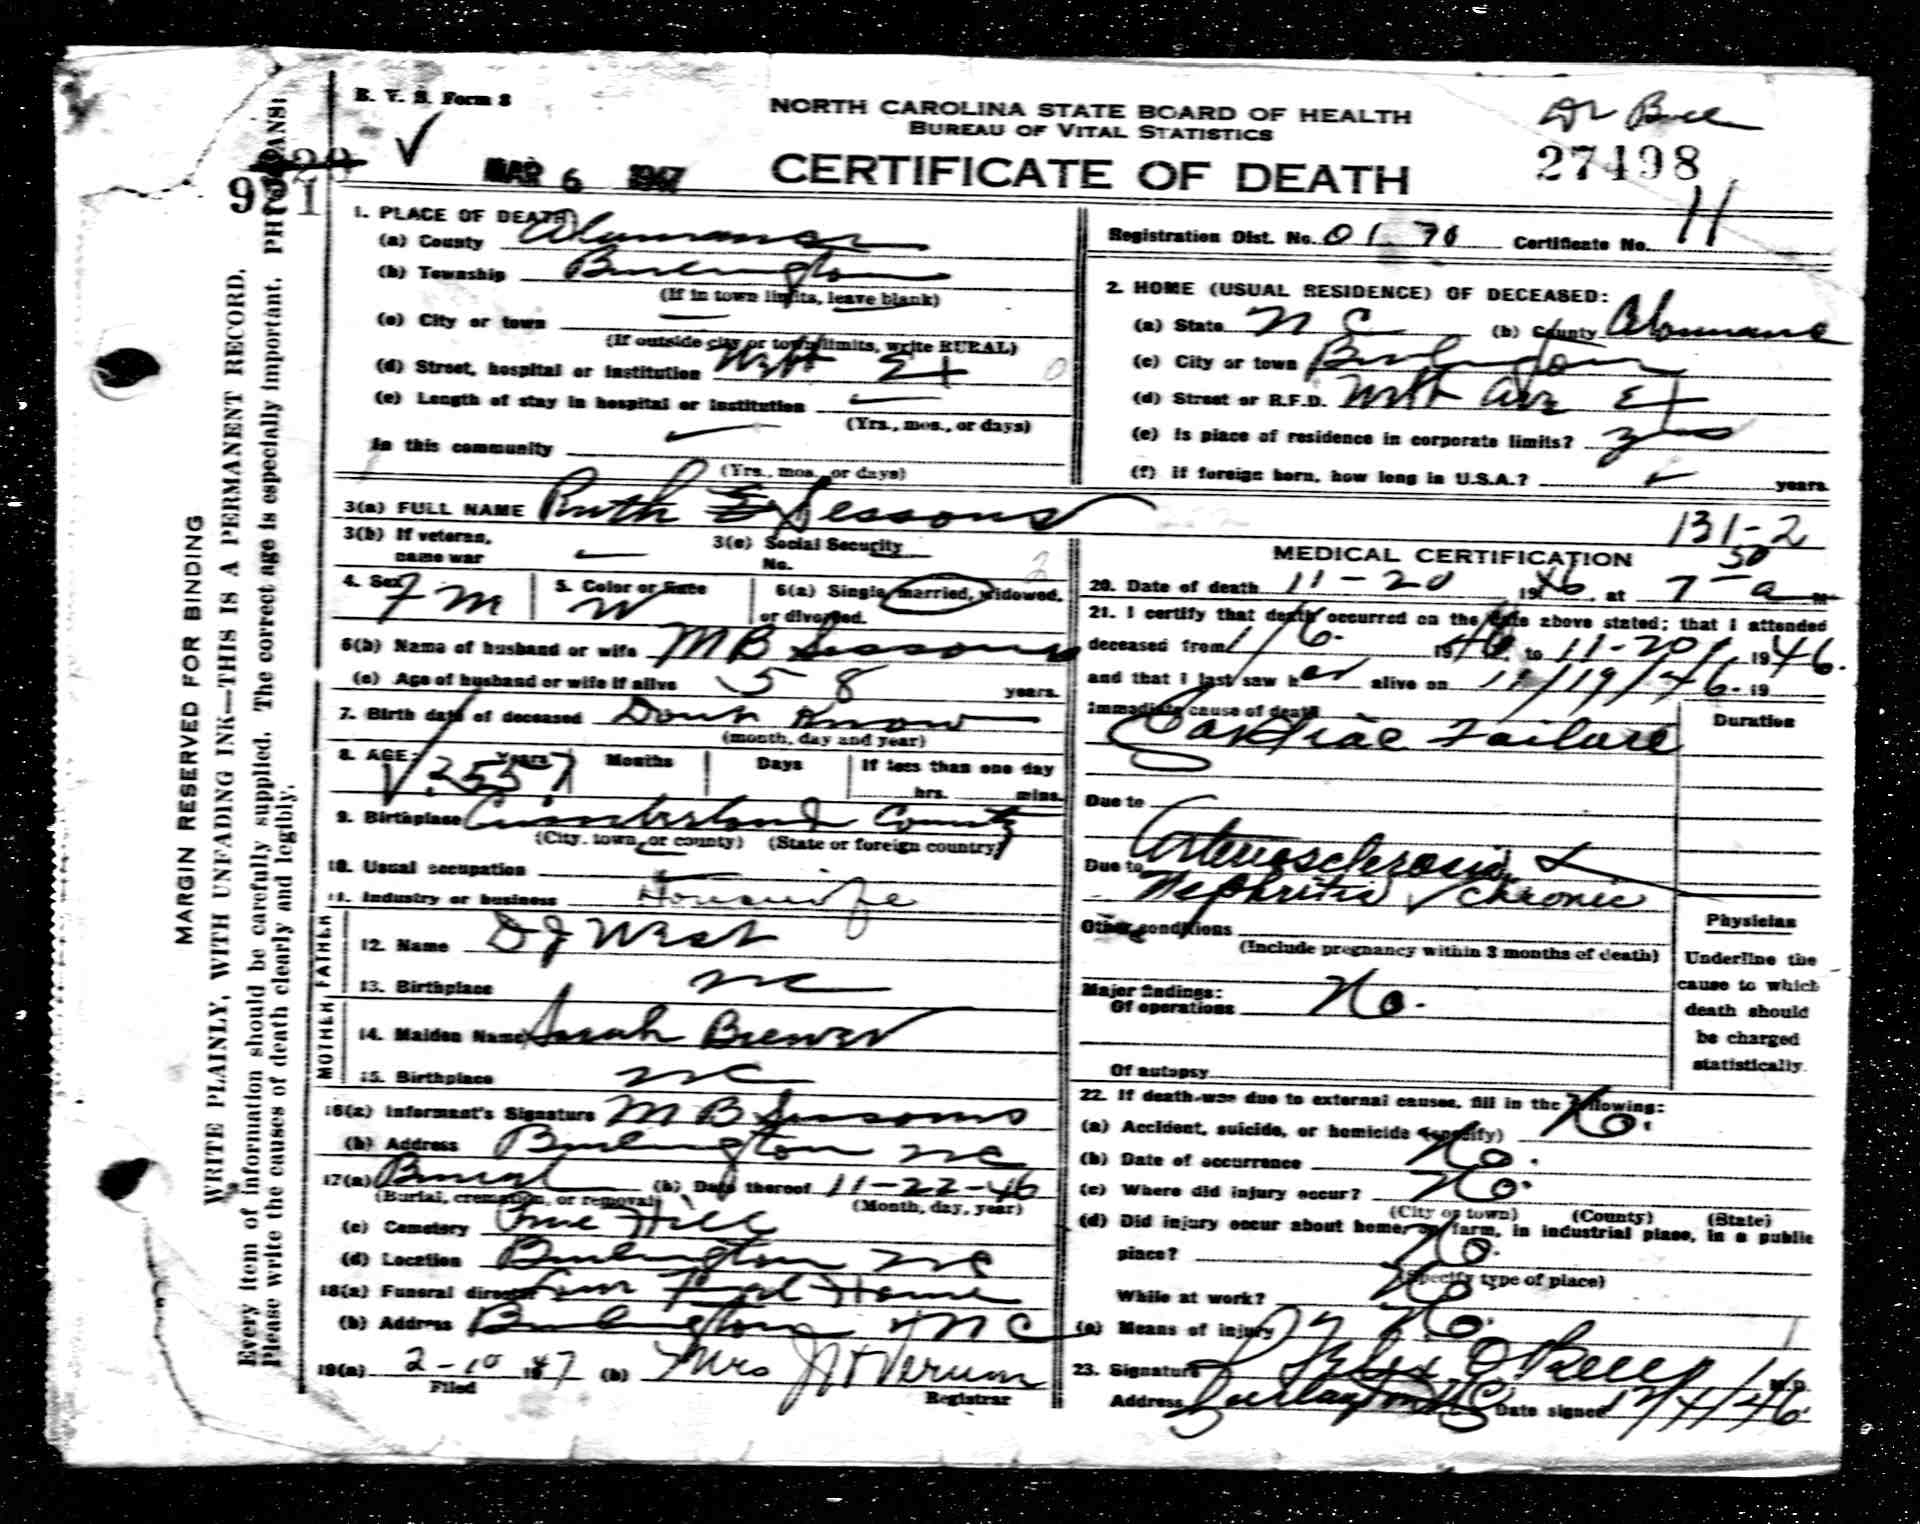 B. V. S. Form 8
NORTH CAROLINA STATE BOARD OF HEALTH
BUREAU OF VITAL STATISTICS
CERTIFICATE OF DEATH
MAR 6 1947
27498
921
MARGIN RESERVED FOR BINDING
WRITE PLAINLY, WITH UNFADING INK—THIS IS A PERMANENT RECORD.
Every item of information should be carefully supplied. The correct age is especially important. PHYSICIANS:
Please write the causes of death clearly and legibly.
1. PLACE OF DEATH
(a) County Alamance
(b) Township Burlington
(If in town limits, leave blank)
(c) City or town
(If outside city or town limits, write RURAL)
(d) Street, hospital or institution Webb Ext
(e) Length of stay in hospital or institution
(Yrs., mos., or days)
In this community
(Yrs., mos., or days)
Registration Dist. No. 01 70 Certificate No. 11
2. HOME (USUAL RESIDENCE) OF DECEASED:
(a) State N C (b) County Alamance
(c) City or town Burlington
(d) Street or R.F.D. Webb Ave Ext
(e) Is place of residence in corporate limits? yes
(f) If foreign born, how long in U.S.A.? years.
3(a) FULL NAME Ruth Sessoms
131-2
3(b) If veteran, name war
3(c) Social Security No.
4. Sex Fm
5. Color or Race W
6(a) Single, married, widowed, or divorced.
6(b) Name of husband or wife M B Sessoms
(c) Age of husband or wife if alive 58 years.
7. Birth date of deceased Dont Know
(month, day and year)
8. AGE: Years 57 Months Days If less than one day
hrs. mins.
9. Birthplace Cumberland County
(City, town, or county) (State or foreign country)
10. Usual occupation
11. Industry or business Housewife
FATHER
12. Name D J West
13. Birthplace NC
MOTHER
14. Maiden Name Sarah Brewer
15. Birthplace NC
16(a) Informant's Signature M B Sessoms
(b) Address Burlington NC
17(a) Burial (b) Date thereof 11-22-46
(Burial, cremation, or removal) (Month, day, year)
(c) Cemetery Pine Hill
(d) Location Burlington NC
18(a) Funeral director Home
(b) Address Burlington NC
19(a) 2-10 1947 (b) Mrs J H Vernon
Filed Registrar
MEDICAL CERTIFICATION
20. Date of death 11-20 1946, at 7 50 a M
21. I certify that death occurred on the date above stated; that I attended
deceased from 1/6 1946, to 11-20, 1946.
and that I last saw her alive on 11/19/46. 19
Immediate cause of death Duration
Cardiac Failure
Due to
Arteriosclerosis &
Due to
Nephritis chronic
Other conditions
(Include pregnancy within 3 months of death)
Major findings:
Of operations No.
Of autopsy
Physician
Underline the
cause to which
death should
be charged
statistically.
22. If death was due to external causes, fill in the following:
(a) Accident, suicide, or homicide (specify) No.
(b) Date of occurrence No.
(c) Where did injury occur? No.
(City or town) (County) (State)
(d) Did injury occur about home, on farm, in industrial place, in a public
place? No.
(Specify type of place)
While at work? No
(e) Means of injury No.
23. Signature M.D.
Address Burlington NC Date signed 12/4/46